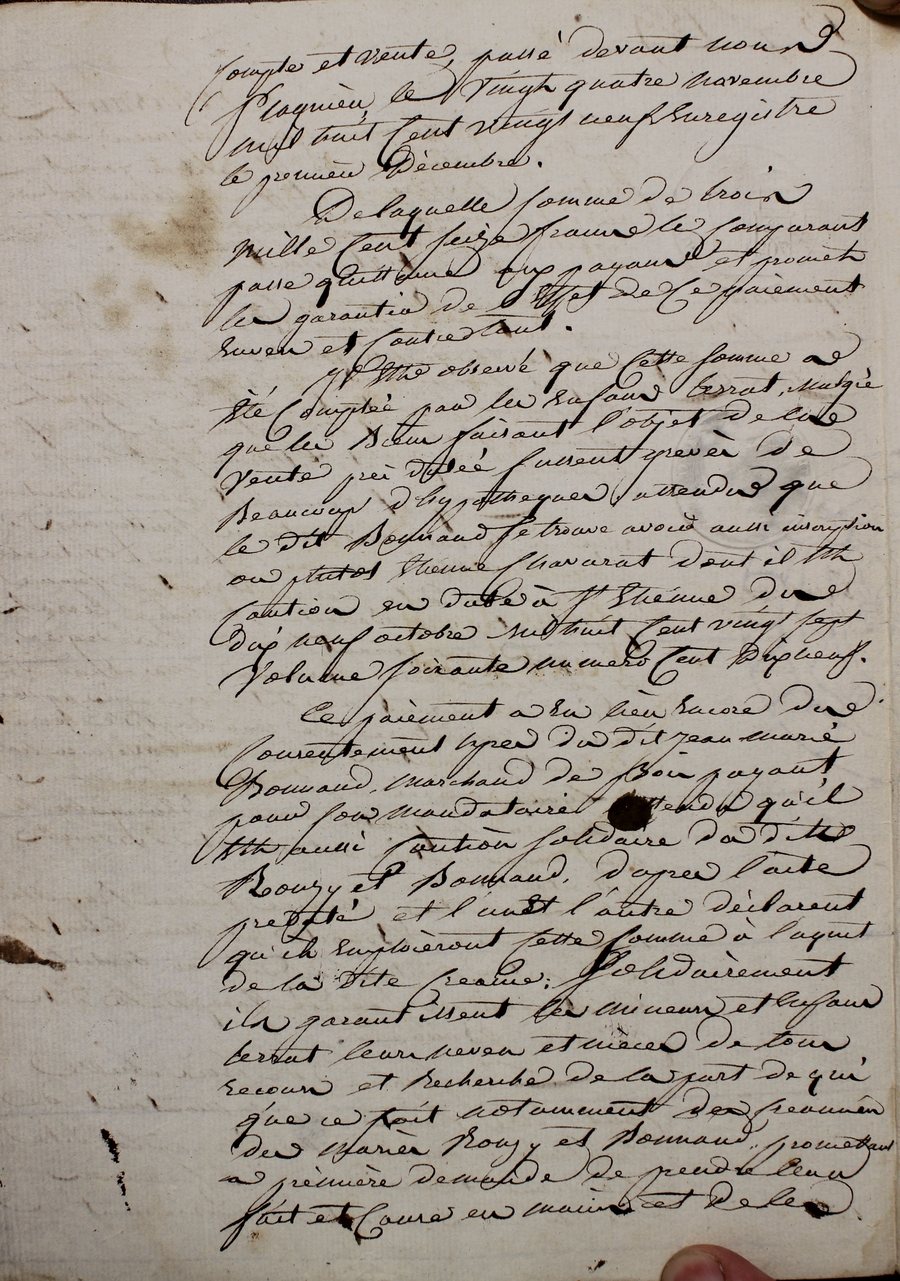 Compte et vente, passé devant nous
Plagnieu le vingt quatre novembre
mil huit cent vingt neuf enregistré
le premier Décembre.
De laquelle somme de trois
mille cent seize francs le comparant
passe quittance aux payans et promet
la garantie de l'effet de ce paiement
envers et contre tous.
Est observé que cette somme a
été comptée par les enfans terrat, Malgré
que les Biens faisant l'objet de la
vente prédatée fussent grevés de
Beaucoup d'hypothèques attendu que
le dit Bonnand se trouve avoir aussi inscription
ou plutot Etienne Chavarat dont il est
Caution en date à St Etienne du
dix neuf octobre mil huit cent vingt sept
Volume soixante numero cent dixneuf.
Ce paiement a eu lieu encore du
Consentement exprès du dit jean marie
Bonnand, marchand de Bois payant
pour son mandataire attendu qu'il
est aussi caution solidaire du dit
Rouzy et Bonnand, d'après l'acte
predaté et l'un et l'autre déclarent
qu'ils emploieront cette somme à l'aquit
de la dite creance; Solidairement
ils garantissent les mineurs et enfans
terrat leurs neveu et nièces de tous
recours et recherche de la part de qui
que ce soit notamment des creanciers
des mariés Rouzy et Bonnand, promettant
a première demande de prendre leur
fait et Cause en mains et de les